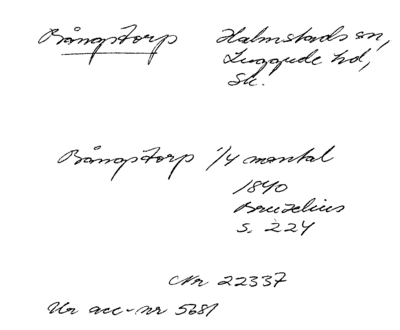 Bångstorp Halmstads sn,
Luggude hd,
Sk.
Bångstorp 1/4 mantal
1840
Bruzelius
s. 224
Nr 22337
Ur acc-nr 5681